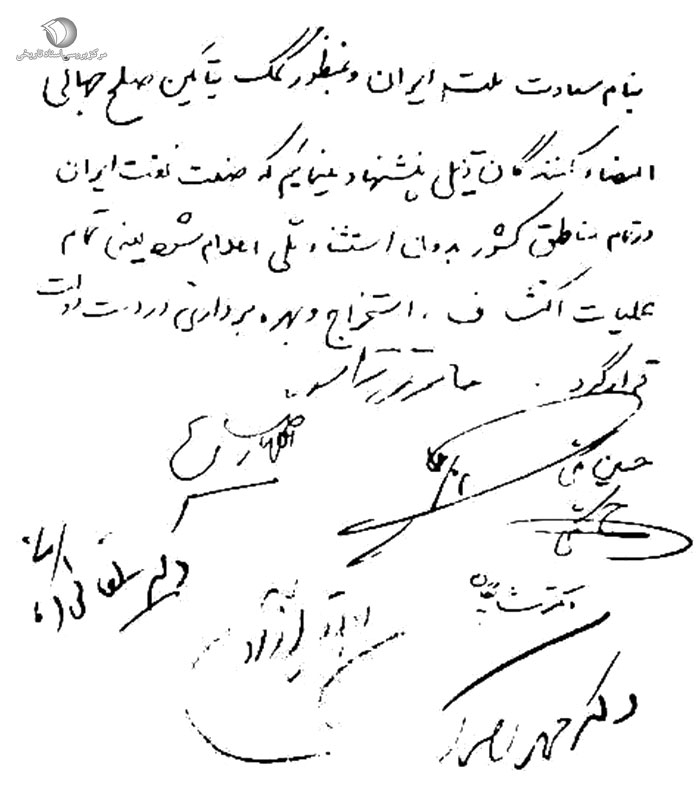 مرکز بررسی اسناد تاریخی
بنام سعادت ملت ایران و بمنظور کمک بتأمین صلح جهانی
امضاء کنندگان ذیل پیشنهاد مینمائیم که صنعت نفت ایران
در تمام مناطق کشور بدون استثناء ملی اعلام شود یعنی تمام
عملیات اکتشاف، استخراج و بهره برداری در دست دولت
قرار گیرد. حائری زاده
اللهیار صالح
حسین مکی
دکتر شایگان